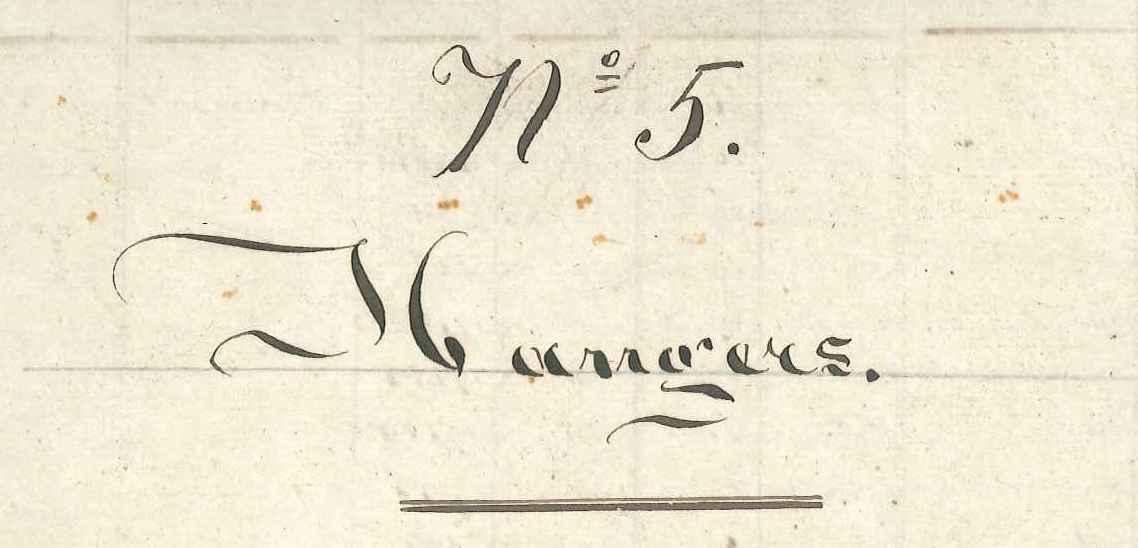 Nº 5.
Hangers.